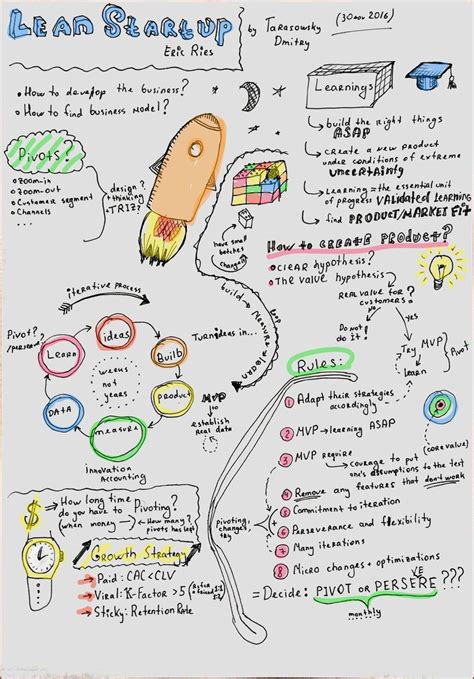 LEAN STARTUP
Eric Ries
by Tarasowsky
Dmitry
(30 Nov 2016)
• How to develop the business?
• How to find business model?
Learnings
build the right things
ASAP
create a new product
under conditions of extreme
uncertainty
Learning = the essential unit
of progress Validated learning
find PRODUCT/MARKET Fit
Pivots?
• Zoom-in
• Zoom-out
• Customer segment
• Channels
design?
+ thinking
TRIZ?
have small
batches
changes
build → measure → learn
How to create product?
• Clear hypothesis?
• The value hypothesis
Real value for
customers?
no
yes
Do not
do it!
Try MVP
Learn
Pivot
iterative process
Pivot?
ideas
Build
product
measure
DATA
Learn
weeks
not
years
Turn ideas in...
MVP
establish
real data
Innovation
Accounting
Rules:
1 Adapt their strategies
accordingly
2 MVP → learning ASAP
3 MVP require
courage to put
one's assumptions to the test
(core value)
4 Remove any features that don't work
5 Commitment to iteration
6 Perseverance and flexibility
7 Many iterations
8 Micro changes + optimizations
= Decide: PIVOT OR PERSERE ???
VE
monthly
$
How long time
do you have to Pivoting?
(when money → How many?
pivots has left)
pivoting,
changes,
try
Growth Strategy
→ Paid: CAC < CLV
→ Viral: K-Factor > 5
→ Sticky: Retention Rate